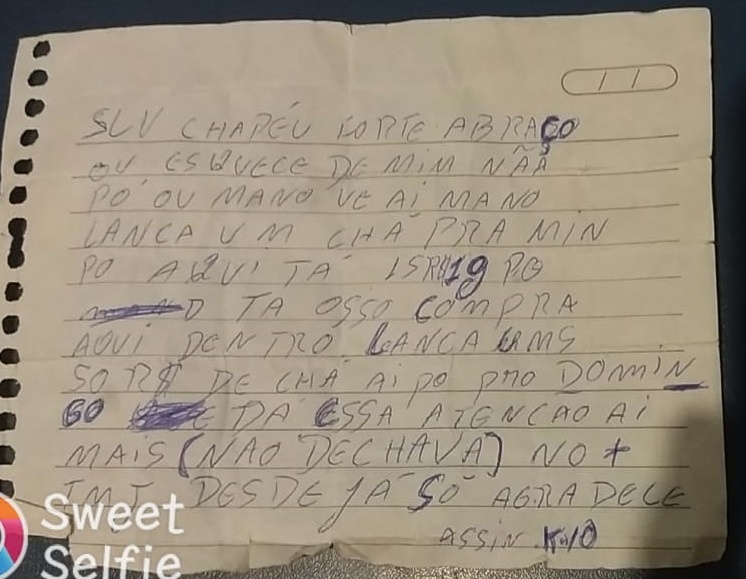 SLV CHAPÉU FORTE ABRAÇO
OU ESQUECE DE MIM NÃÃ
PÔ OU MANO VE AÍ MANO
LANCA UM CHÁ PRA MIN
PO AQUI TÁ 15R$ 1g PO
TA OSSO COMPRA
AQUI DENTRO LANCA UMS
50R$ DE CHÁ AI PO PRO DOMIN
GO DÁ ESSA ATENCAO AI
MAIS (NAO DECHAVA) NO +
TMJ DESDE JÁ SÓ AGRADECE
ASSIN
Sweet
Selfie